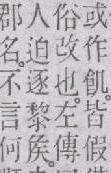 或作飢皆假
俗改也左傳
人迫逐黎侯
郡名不言何